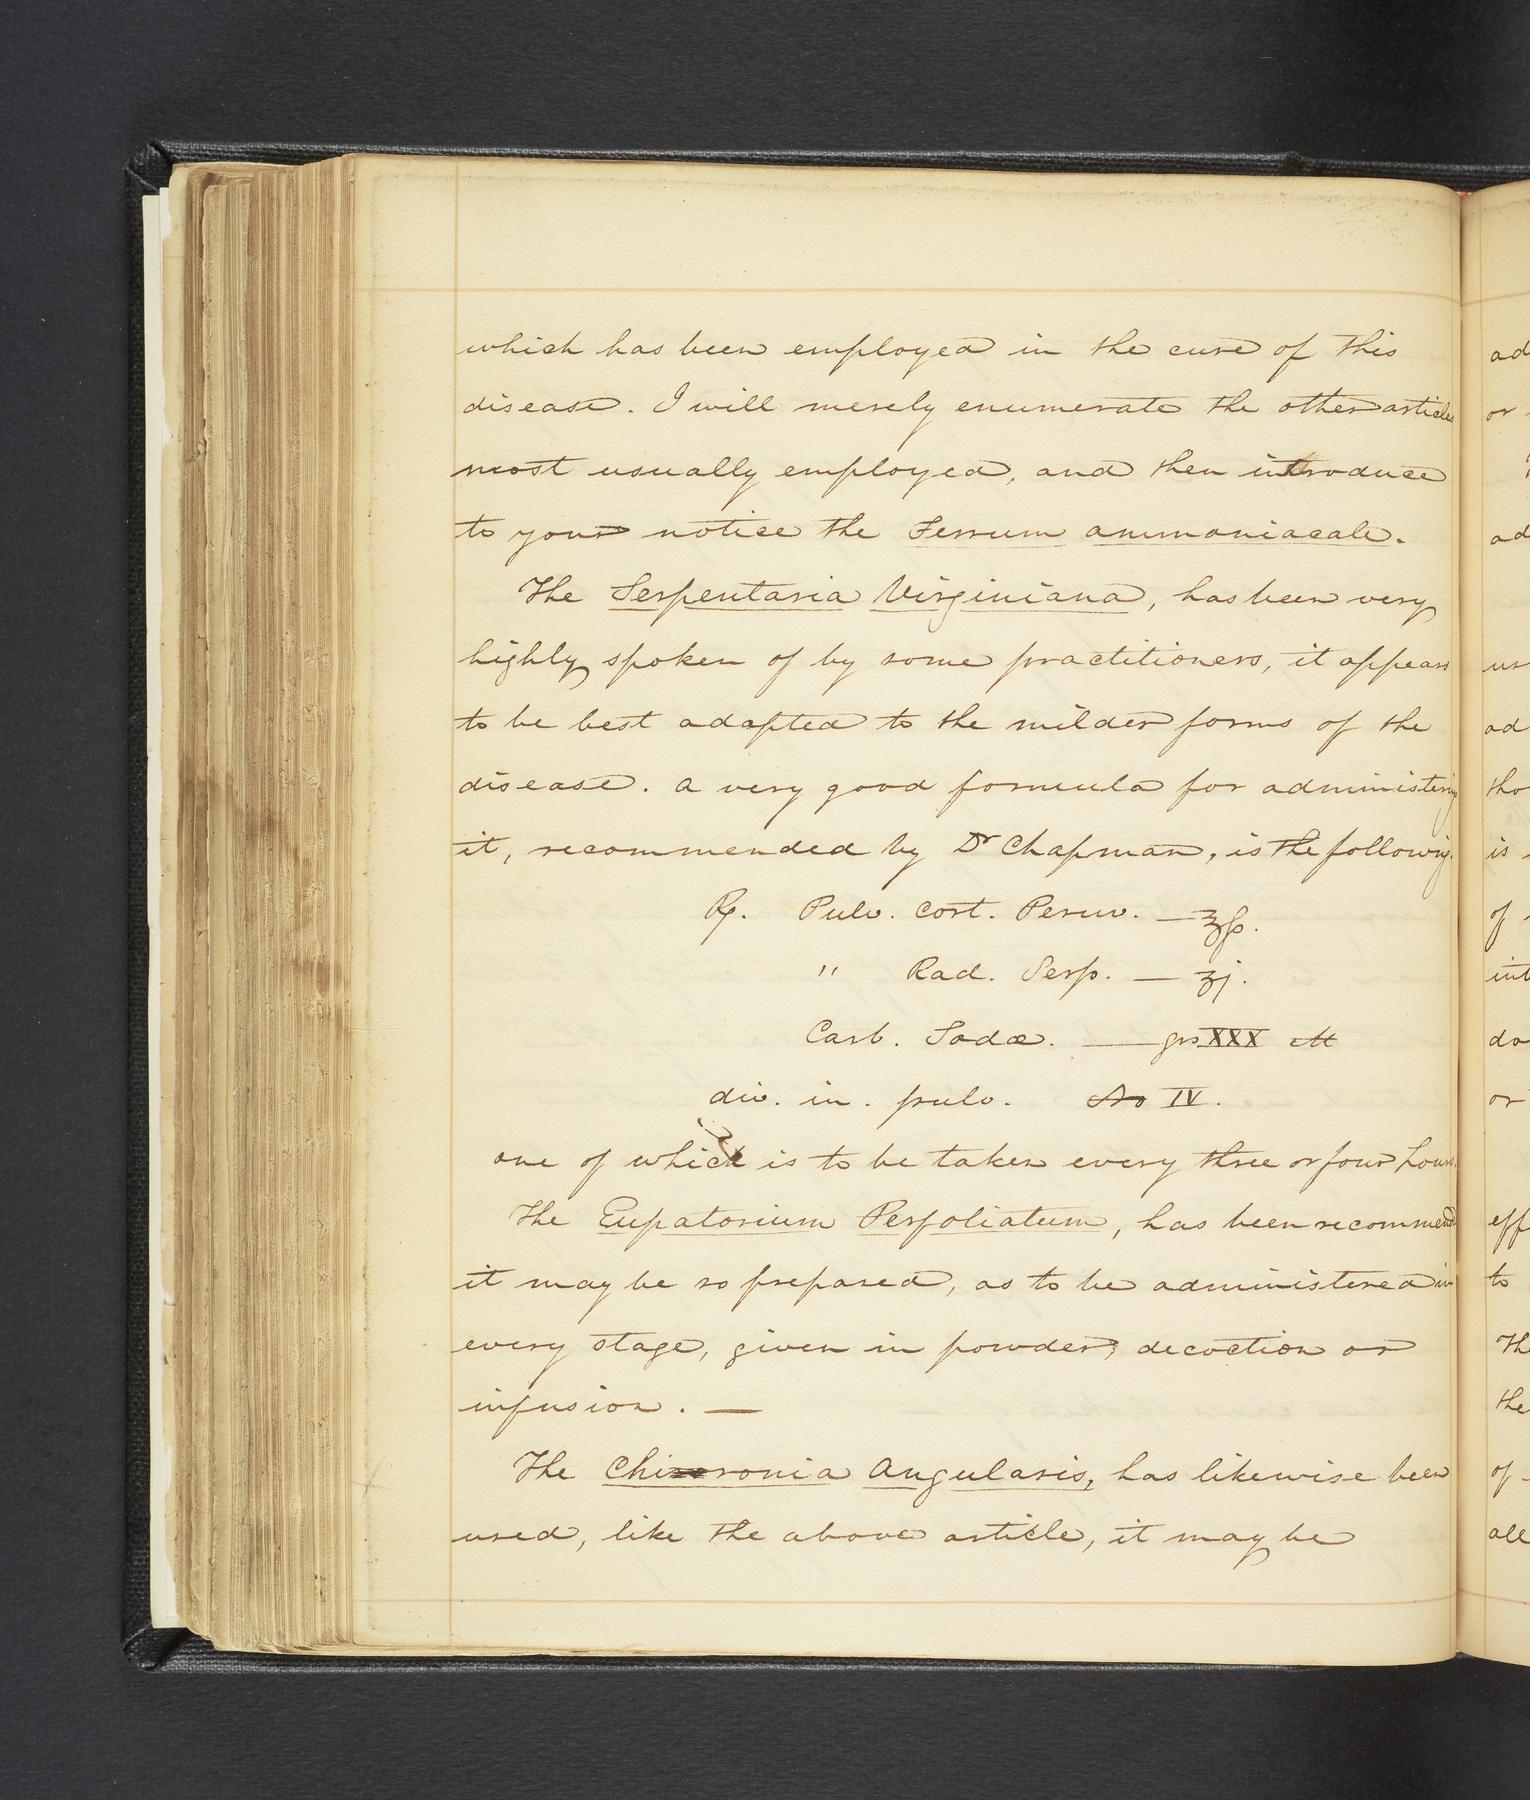 which has been employed in the cure of this
disease. I will merely enumerate the other articles
most usually employed, and then introduce
to your notice the Ferrum ammoniacale.
The Serpentaria Virginiana, has been very
highly spoken of by some practitioners, it appears
to be best adapted to the milder forms of the
disease. A very good formula for administering
it, recommended by Dr Chapman, is the following.
℞. Pulv. Cort. Peruv. — ʒſs.
" Rad. Serp. — ʒj.
Carb. Sodæ. — grs XXX M
div. in. pulv. No IV.
one of which is to be taken every three or four hours.
The Eupatorium Perfoliatum, has been recommend
it may be so prepared, as to be administered in
every stage, given in powder, decoction or
infusion. —
The Chironia Angularis, has likewise been
used, like the above article, it may be
ad
or
ad
us
ad
tho
is
of
int
do
or
eff
to
Th
the
of
all